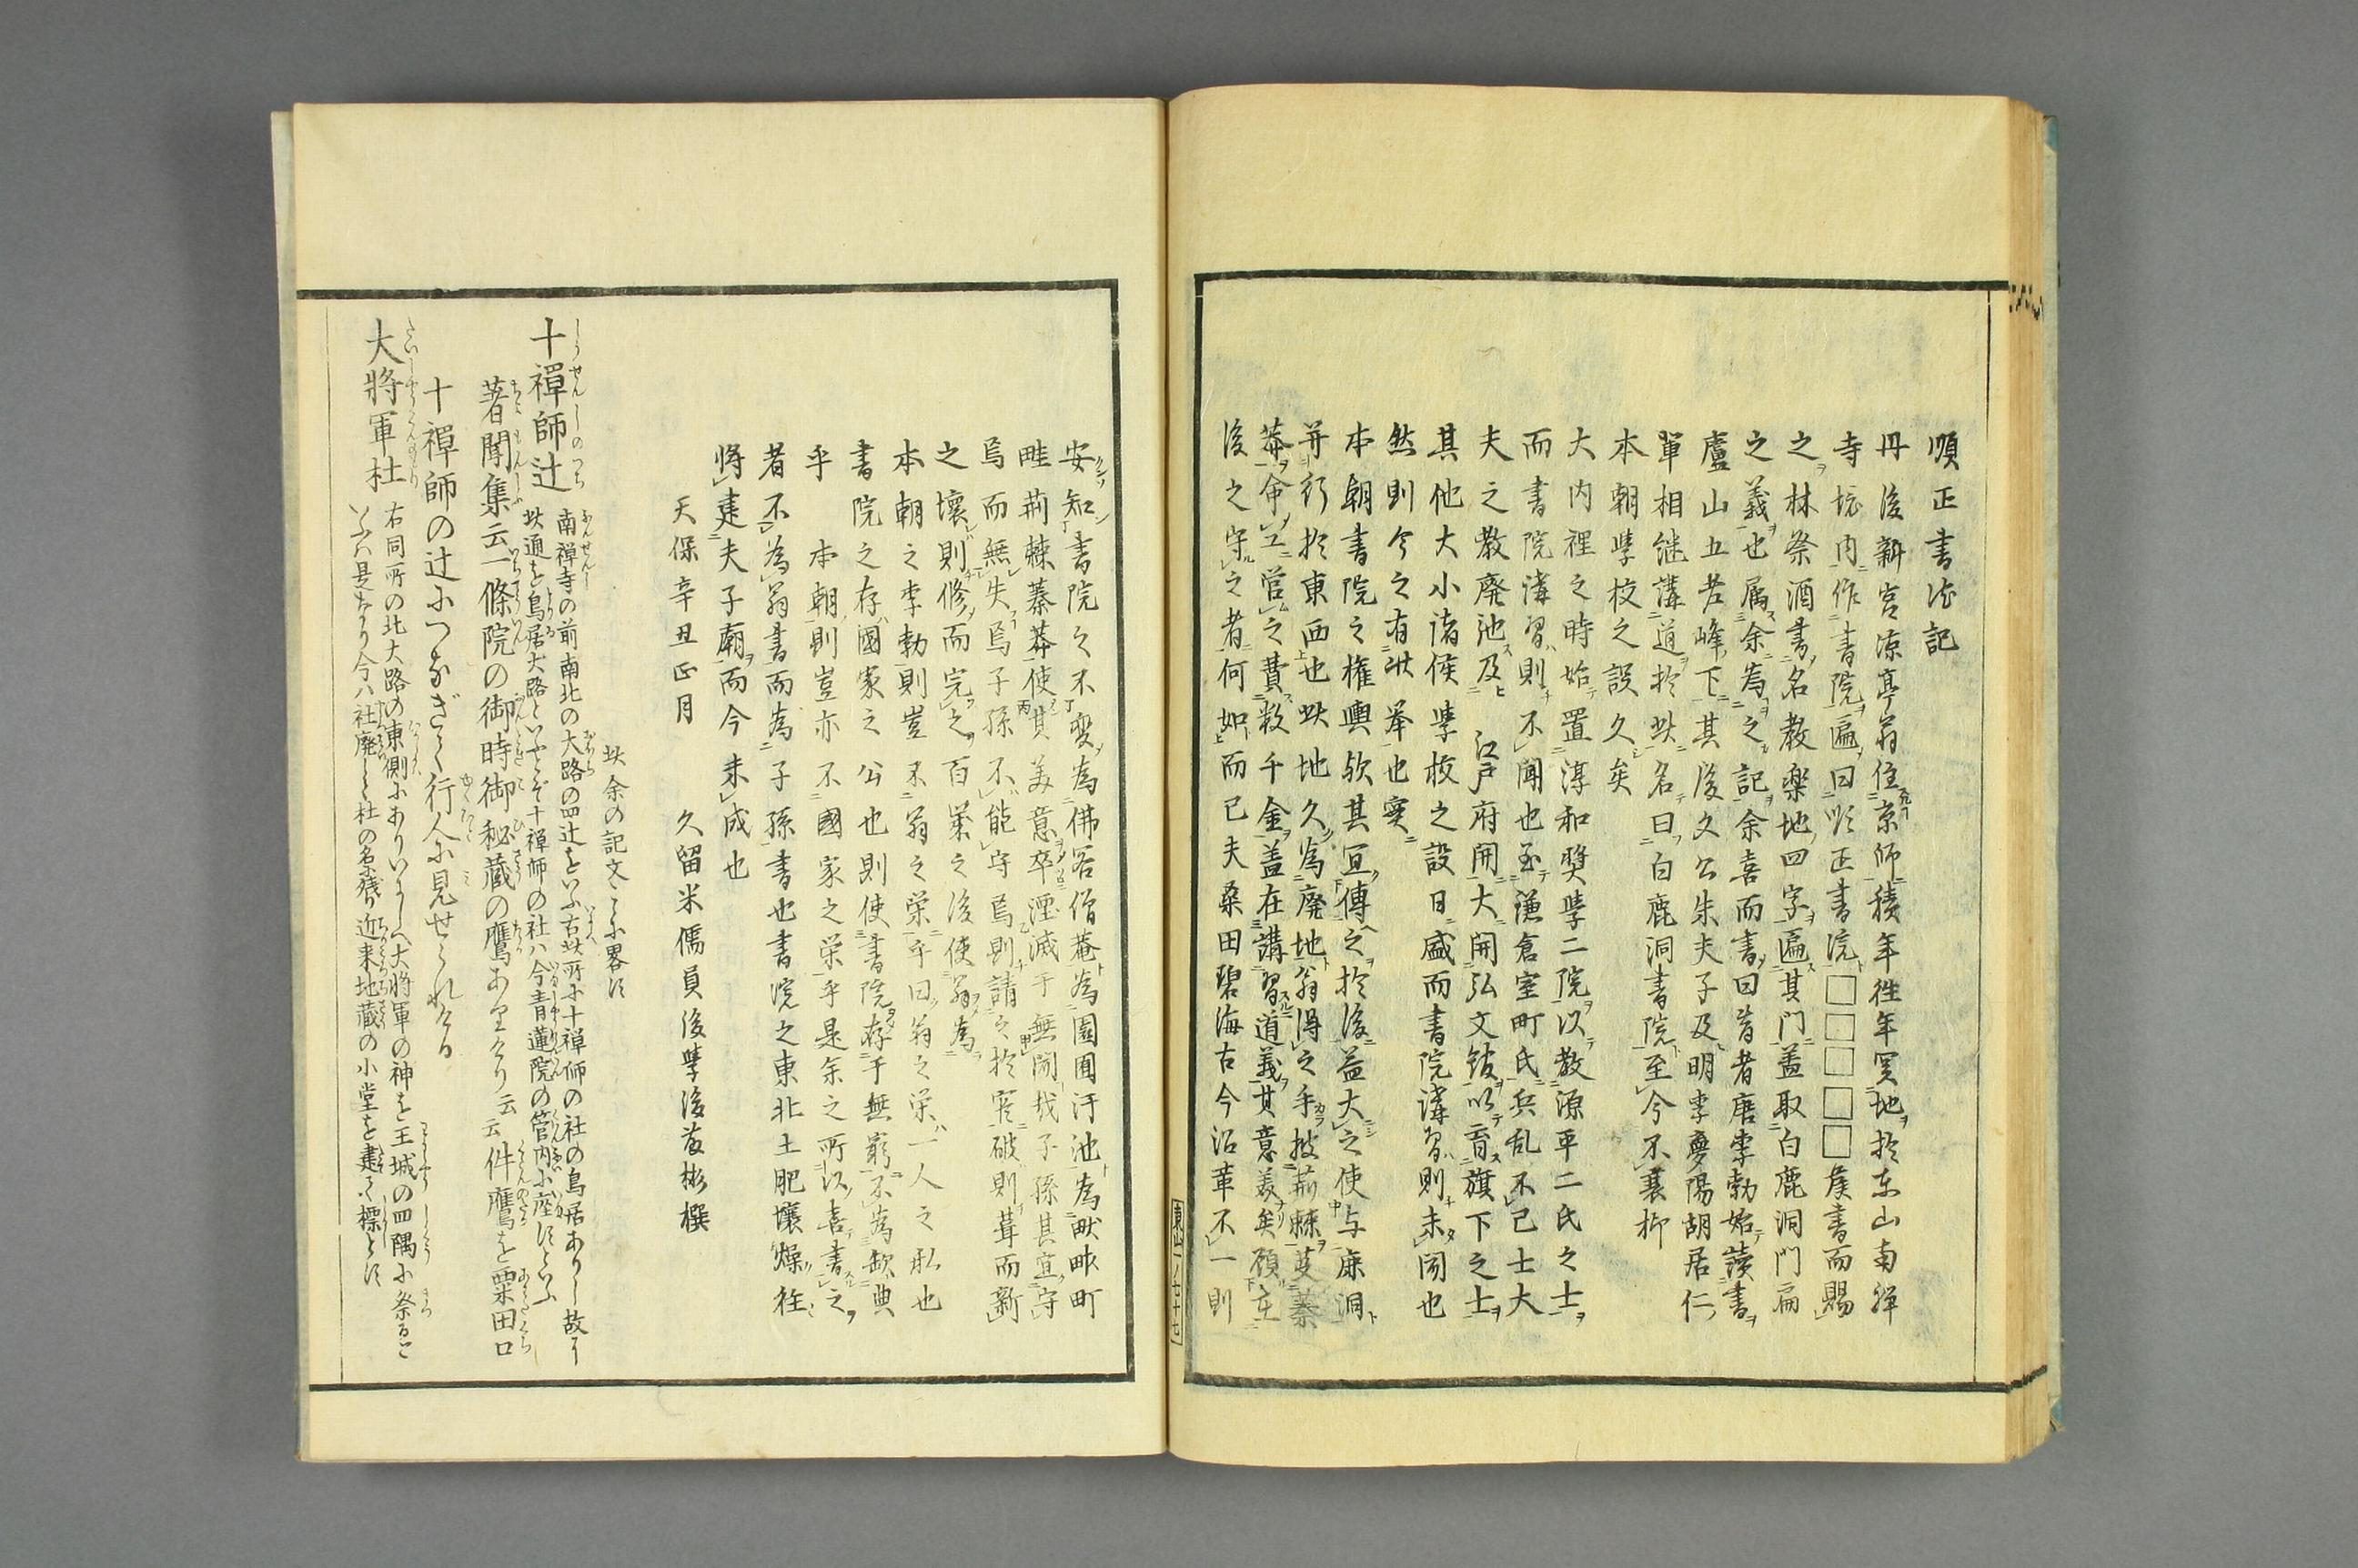 順正書院記
丹後新宮凉亭翁住京師積年徃年買地於东山南禅
寺境内作書院匾曰順正書院□□□□□矦書而賜
之林祭酒書名教楽地四字匾其門盖取白鹿洞門扁
之義也属余為之記余喜而書曰昔者唐李勃始讀書
廬山五老峰下其後文公朱夫子及明李夢陽胡居仁
軰相継講道於此名曰白鹿洞書院至今不衰抑
本朝學校之設久矣
大内裡之時始置淳和奬學二院以教源平二氏之士
而書院講習則不聞也至鎌倉室町氏兵乱不已士大
夫之教廃池及　江戸府開大開弘文舘以育旗下之士
其他大小諸侯學校之設日盛而書院講習則未聞也
然則今之有此挙也實
本朝書院之権輿欤其宜傳之於後益大之使与鹿洞
并行於東西也此地久為廃地翁得之手披荊棘芟蓁
莽命工営之費数千金盖在講習道義其意美矣顧在
後之守之者何如而已夫桑田碧海古今沿革不一則
東山一ノ七十七
安知書院之不變為佛客僧菴為園圃汙池為畎畝町
畦荊棘蓁莽使其美意卒湮滅于無聞我子孫其宜守
焉而無失焉子孫不能守焉則請之於官破則葺而新
之壊則修而完之百業之後使翁為
本朝之李勃則豈不翁之栄乎曰翁之栄一人之私也
書院之存國家之公也則使書院存于無窮不為欽典
乎本朝則豈亦不國家之栄乎是余之所以喜書之
者不為翁書而為子孫書也書院之東北土肥壤燥往
将建夫子廟而今未成也
天保辛丑正月　久留米儒員後學後菱彬撰
此余の記文こゝに畧す
十禪師辻　南禅寺の前南北の大路の四辻をいふ古此所に十禅師の社の鳥居ありし故に
此通を鳥居大路といへとそ十禅師の社ハ今青蓮院の管内に座すといふ
著聞集云一條院の御時御秘蔵の鷹ありけり云云件鷹を粟田口
十禪師の辻につなぎて行人に見せられける
大將軍杜　右同所の北大路の東側にありいにしへ大将軍の神を王城の四隅に祭ると
いふハ是なり今ハ社廃して杜の名残か近来地蔵の小堂を建て標とす